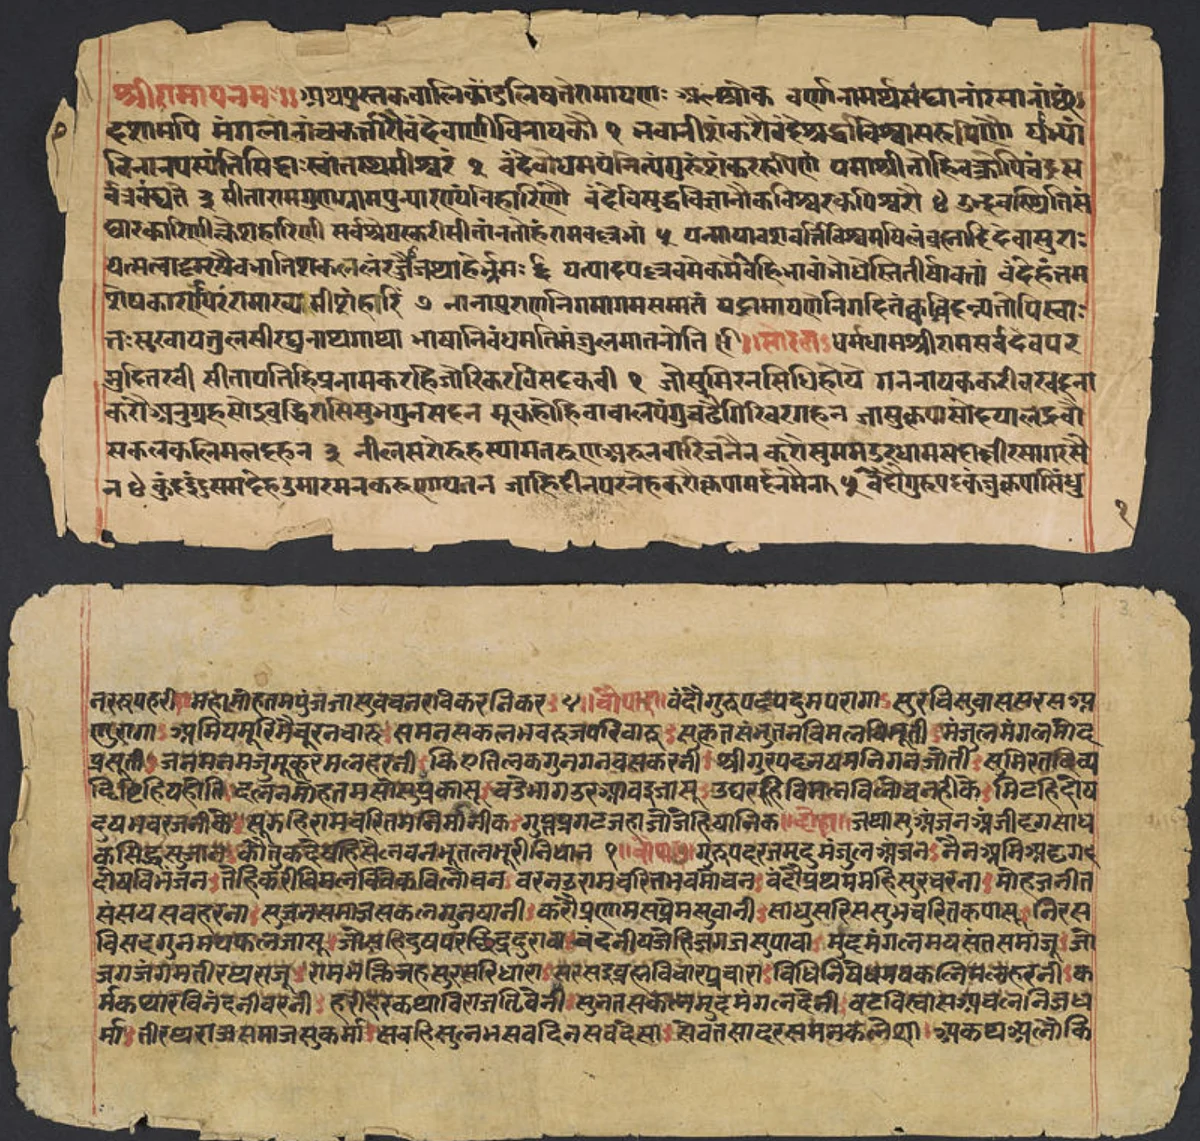 श्रीरामायनमः ॥ अथ पुस्तक वालिकांड लिषते रामायणः श्लोक वर्णानामर्थसंघानां रसानां छं
दशामपि मंगलानां च कर्त्तारौ वंदे वाणीविनायकौ १ भवानीशंकरौ वंदे श्रद्धाविश्वासरूपिणौ याभ्यां
विना न पस्यंति सिद्धाः स्वांतस्थमीश्वरं २ वंदे वोधमयं नित्यं गुरुं शंकररूपिणं यमाश्रीतो हि वक्रोपि चंद्र स
र्वत्र वंद्यते ३ सीतारामगुणग्रामपुन्यारण्यविहारिणौ वंदे विसुद्धविज्ञानौ कविश्वरकपिश्वरौ ४ उद्भवस्थितिसं
घारकारिणीं क्लेशहारिणीं सर्वश्रेयस्करीं सीतां नतोहं रामवल्लभां ५ यन्मायावशवर्त्ति विश्वमषिलं व्रह्मादिदेवासुराः
यत्सत्वादमृषैव भाति शकलं रज्जौ यथाहेर्भ्रमः ६ यत्पादप्लवमेकमेव हि भवांभोधेस्तितीर्षावतां वंदेहं तम
शेषकारणपरं रामाख्यमीशं हरिं ७ नानापुराणनिगमागमसमतं यद्रामायणे निगदितं क्वचिदन्यतोपि स्वा
तःसुखाय तुलसी रघुनाथगाथा भाषानिवंधमतिमंजुलमातनोति ॥ सोरठा धर्मधाम श्रीराम सर्वदेव पर
सीतापतिहि प्रनाम करहि जोरि कर १ जो सुमिरन सिधि होय गननायक करीवर वदना
करौ अनुग्रह सोइ वुद्धिरासि सुभगुनसदन मूक होहि वाचाल पंगु चढै गिरिवर गहन जासु कृपा सो दयाल द्रवौ
सकल कलिमल दहन ३ नील सरोरुह स्याम तरुण अरुन वारिज नैन करौ सु मम उर धाम सदा क्षीरसागर सै
न ४ कुंद इंदु सम देह उमारमन करुणायतन जाहि दीन पर नेह करौ कृपा मर्दन मैन ५ वंदौ गुरुपदकंज कृपासिंधु
नररूप हरी महामोह तम पुंज जासु वचन रविकर निकर ५ ॥ चौपाई ॥ वंदौ गुरुपद पदुम परागा सुरुचि सुवास सरस अ
णुरागा अमिय मूरिमै चूरन चारु समन सकल भव रुज परिवारु सुकृत संभु तन विमल विभूती मंजुल मंगल मोद
प्रसूती जनमन मंजु मुकुर मल हरनी किए तिलक गुनगन वस करनी श्रीगुरपद नष मनिगन जोती सुमिरत दिव्य
दिष्टि हिय होती दलन मोहतम सो सुप्रकासू वडे भाग उर आवइ जासू उघरहि विमल विलोचन हीके मिटहि दोष
दुष भवरजनीके सूझहि रामचरित मनि मानीक गुप्त प्रगट जहा जो जेहि षानिक दोहा जथा सुअंजन अंजी दृग साध
क सिद्ध सुजान कौतुक देषहि सैल वन भूतल भूरी निधान १ ॥ चौपाई ॥ गुरुपद रज मृदु मंजुल अंजन नैन अमिअ दृग
दोष विभंजन तेहि करि विमल विवेक विलोचन वरनउ रामचरित भवमोचन वंदौ प्रथम महिसुर चरना मोहजनीत
संसय सव हरना सुजनसमाज सकल गुनषानी करौ प्रणाम सप्रेम सुवानी साधु सरिस सुभ चरित कपासू निरस
विसद गुनमय फल जासू जो सहि दुष परछिद्र दुरावा वंदनीय जेहि जग जसु पावा मुदमंगलमय संत समाजू जो
जग जंगम तीरथराजू रामभक्ति जह सुरसरिधारा सरसइ व्रह्मविचार प्रचारा विधिनिषेधमय कलिमलहरनी क
र्मकथा रविनंदनी वरनी हरीहर कथा विराजति वेनी सुनत सकल मुदमंगल देनी वट विस्वास अचल निज ध
र्मा तीरथराज समाज सुकर्मा सवहि सुलभ सव दिन सव देसा सेवत सादर समन कलेशा अकथ अलौकि